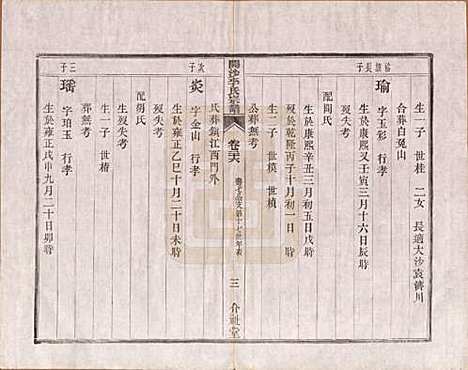 生一子 世桂 二女 長適大沙袁濟川
合葬白兔山
瑜
字玉彩 行孝
生於康熙
壬寅三月十六日辰時
歿失考
配闗氏
生於康熙辛丑三月初五日戌時
歿於乾隆丙子十月初一日 時
生二子 世模 世楨
公葬無考
開沙李氏宗譜
卷二六
三
介祉堂
氏葬鎮江西門外
次子
炎
字金山 行孝
生於雍正乙巳十月二十日未時
歿失考
配胡氏
生歿失考
生一子 世楷
葬無考
三子
瑤
字珀玉 行孝
生於雍正戊申九月二十日卯時